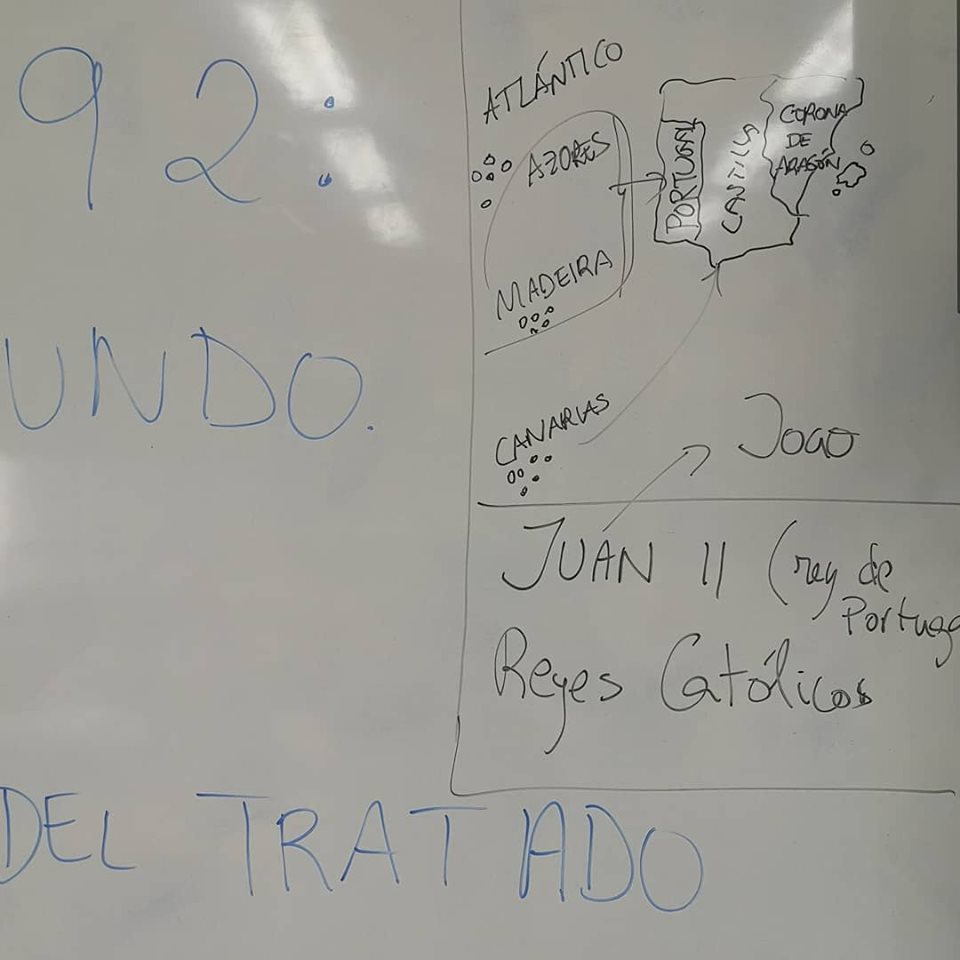 92:
UNDO.
DEL TRATADO
ATLÁNTICO
AZORES
MADEIRA
CANARIAS
PORTUGAL
CASTILLA
CORONA
DE
ARAGÓN
Joao
JUAN II (rey de
Portuga
Reyes Católicos